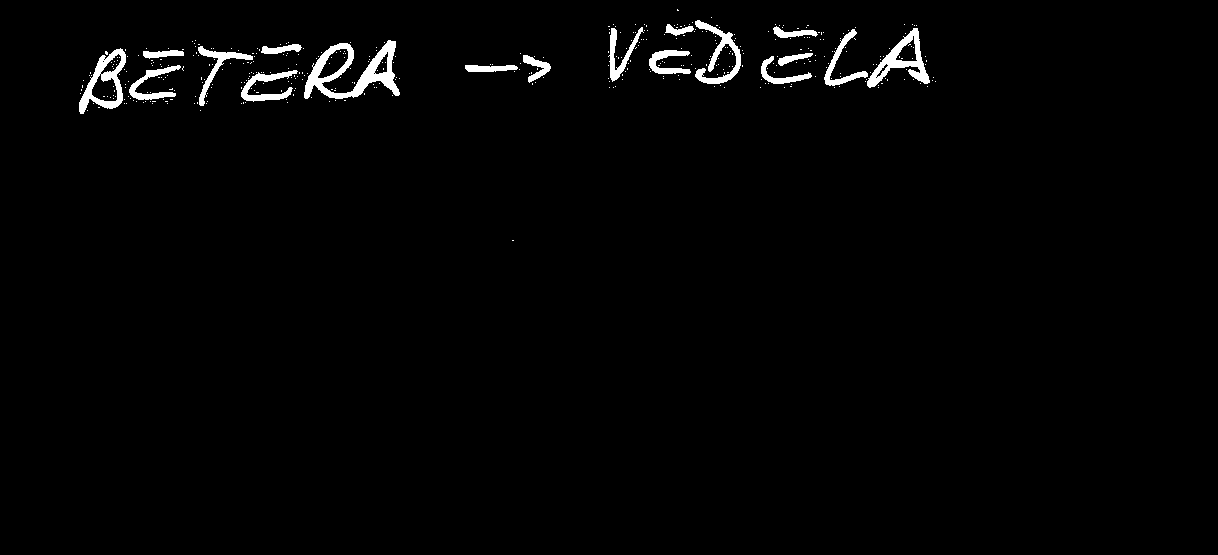 BETERA -> VEDELA